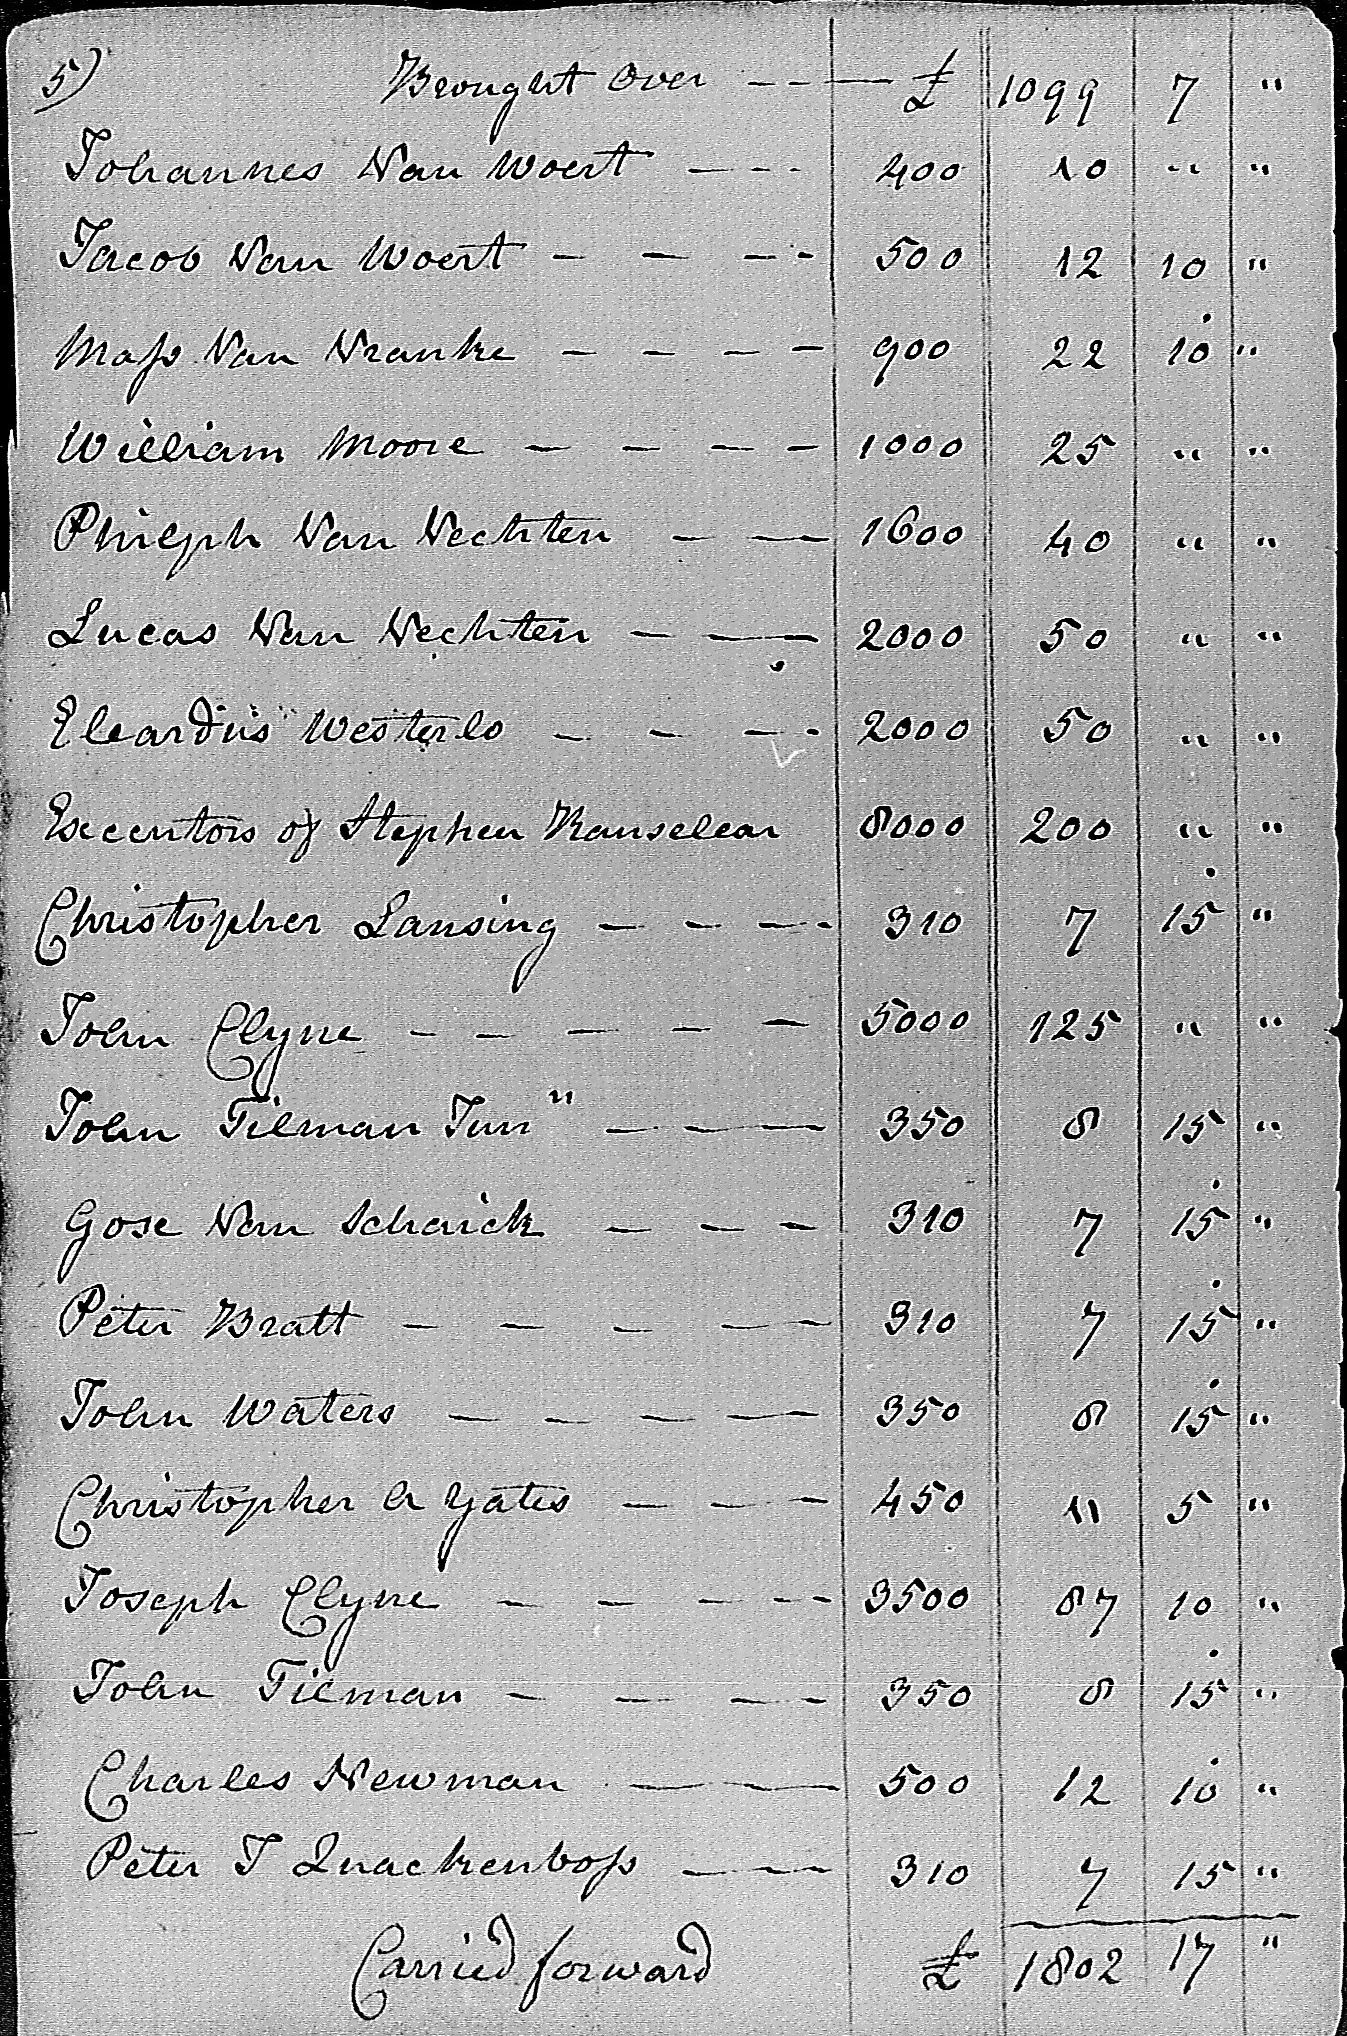 5) Brought Over ----- £ 1099 7 "
Johannes Van Woert --- 400 10 " "
Jacob Van Woert ---- 500 12 10 "
Mass Van Vranke ---- 900 22 10 "
William Moore ---- 1000 25 " "
Philiph Van Vechten -- 1600 40 " "
Lucas Van Vechten -- 2000 50 " "
Eleardus Westerlo ---- 2000 50 " "
Executors of Stephen Ranselear 8000 200 " "
Christopher Lansing ---- 310 7 15 "
John Clyne ----- 5000 125 " "
John Tilman Junr --- 350 8 15 "
Gose Van Schaick --- 310 7 15 "
Peter Bratt ----- 310 7 15 "
John Waters ---- 350 8 15 "
Christopher A Yates --- 450 11 5 "
Joseph Clyne ----- 3500 87 10 "
John Tilman ---- 350 8 15 "
Charles Newman -- 500 12 10 "
Peter J Quackenboss --- 310 7 15 "
Carried forward £ 1802 17 "